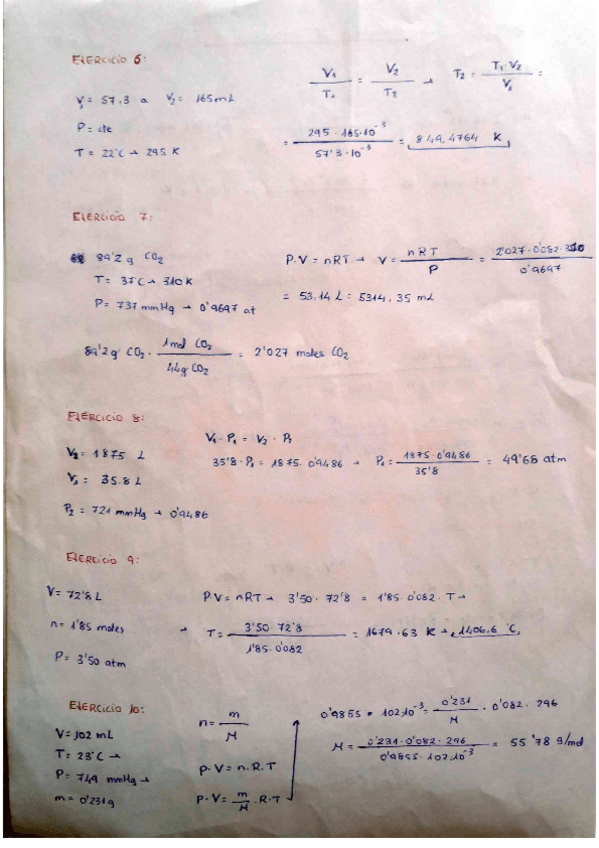 EJERCICIO 6:
V₁/T₁ = V₂/T₂ → T₂ = T₁·V₂/V₁ =
V₁ = 57.3 a V₂ = 165 mL
P = cte
T = 22°C → 295 K
= 295 · 165·10⁻³ / 57'3·10⁻³ = 849.4764 K
EJERCICIO 7:
89'2 g CO₂
T = 37°C → 310 K
P = 737 mmHg → 0'9697 at
P·V = nRT → V = nRT/P = 2'027·0'082·310 / 0'9697
= 53.14 L = 5314.35 mL
89'2 g CO₂ · 1mol CO₂ / 44g CO₂ = 2'027 moles CO₂
EJERCICIO 8:
V₂ = 1875 L
V₁ = 35.8 L
P₂ = 721 mmHg → 0'9486
V₁·P₁ = V₂·P₂
35'8·P₁ = 1875·0'9486 → P₁ = 1875·0'9486 / 35'8 = 49'68 atm
EJERCICIO 9:
V = 72'8 L
n = 1'85 moles
P = 3'50 atm
P·V = nRT → 3'50 · 72'8 = 1'85·0'082·T →
→ T = 3'50·72'8 / 1'85·0'082 = 1679.63 K → 1406.6 °C
EJERCICIO 10:
V = 102 mL
T = 23°C →
P = 749 mmHg →
m = 0'231g
n = m/M
P·V = n.R.T
P·V = m/M .R.T
0'9855 · 102·10⁻³ = 0'231/M · 0'082 · 296
M = 0'231·0'082·296 / 0'9855·102·10⁻³ = 55'78 g/mol